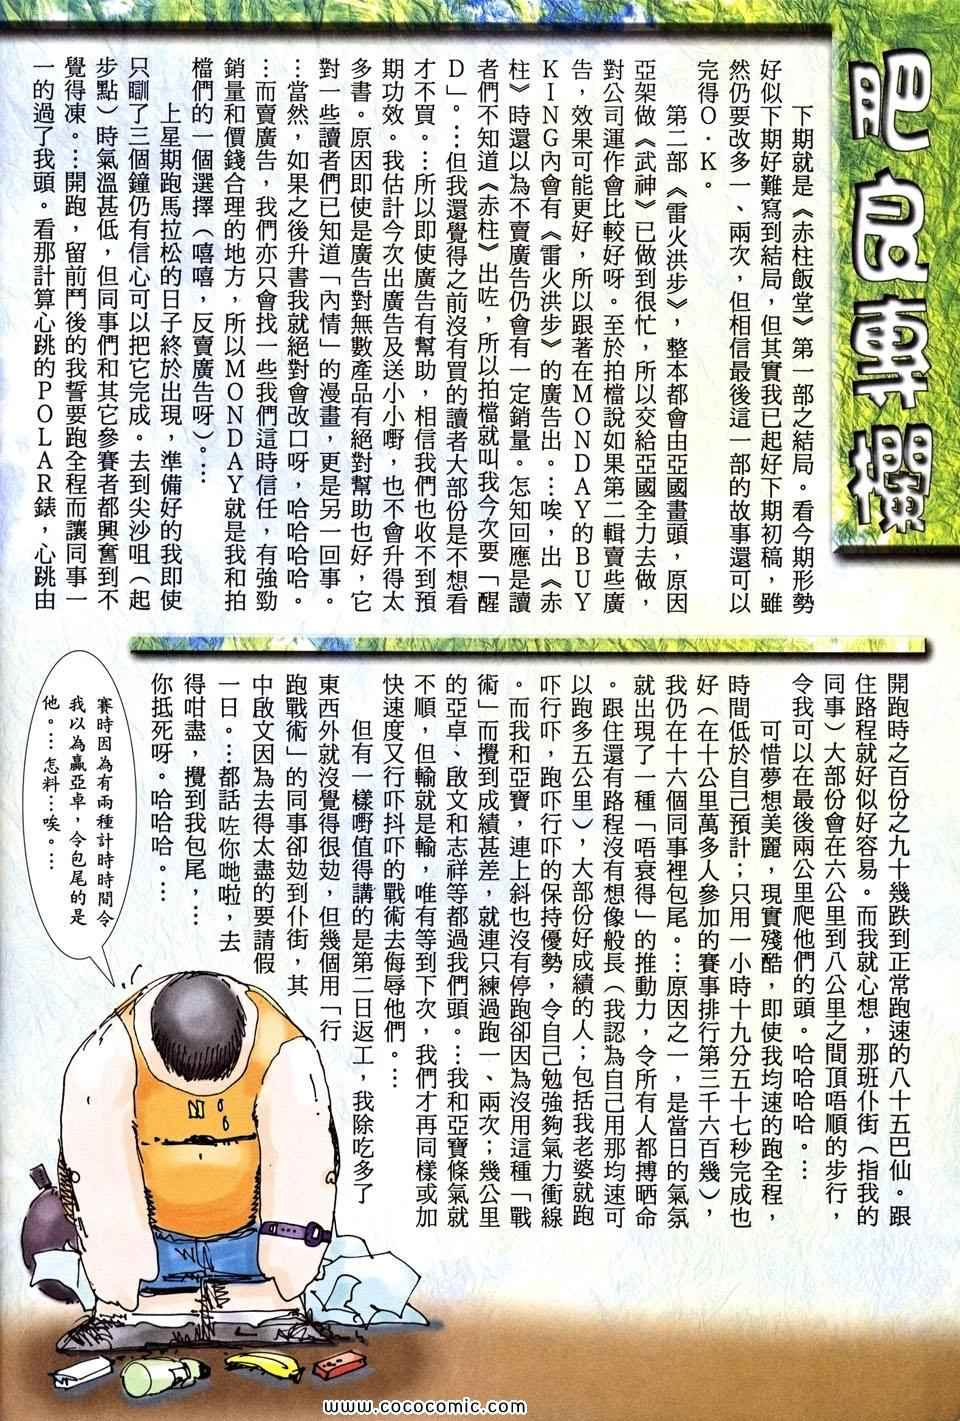 肥良專欄
下期就是《赤柱飯堂》第一部之結局。看今期形勢
好似下期好難寫到結局，但其實我已起好下期初稿，雖
然仍要改多一、兩次，但相信最後這一部的故事還可以
完得O．K。
第二部《雷火洪步》，整本都會由亞國畫頭，原因
亞架做《武神》已做到很忙，所以交給亞國全力去做，
對公司運作會比較好呀。至於拍檔說如果第二輯賣些廣
告，效果可能更好，所以跟著在MONDAY的BUY
KING內會有《雷火洪步》的廣告出。…唉，出《赤
柱》時還以為不賣廣告仍會有一定銷量。怎知回應是讀
者們不知道《赤柱》出咗，所以拍檔就叫我今次要「醒
D」。…但我還覺得之前沒有買的讀者大部份是不想看
才不買。…所以即使廣告有幫助，相信我們也收不到預
期功效。我估計今次出廣告及送小小嘢，也不會升得太
多書。原因即使是廣告對無數產品有絕對幫助也好，它
對一些讀者們已知道「內情」的漫畫，更是另一回事。
…當然，如果之後升書我就絕對會改口呀，哈哈哈哈。
…而賣廣告，我們亦只會找一些我們這時信任，有強勁
銷量和價錢合理的地方，所以MONDAY就是我和拍
檔們的一個選擇（嘻嘻，反賣廣告呀）。…
上星期跑馬拉松的日子終於出現，準備好的我即使
只瞓了三個鐘仍有信心可以把它完成。去到尖沙咀（起
步點）時氣溫甚低，但同事們和其它參賽者都興奮到不
覺得凍。…開跑，留前鬥後的我誓要跑全程而讓同事一
一的過了我頭。看那計算心跳的POLAR錶，心跳由
開跑時之百份之九十幾跌到正常跑速的八十五巴仙。跟
住路程就好似好容易。而我就心想，那班仆街（指我的
同事）大部份會在六公里到八公里之間頂唔順的步行，
令我可以在最後兩公里爬他們的頭。哈哈哈哈。…
可惜夢想美麗，現實殘酷，即使我均速的跑全程，
時間低於自己預計；只用一小時十九分五十七秒完成也
好（在十公里萬多人參加的賽事排行第三千六百幾），
我仍在十六個同事裡包尾。…原因之一，是當日的氣氛
就出現了一種「唔衰得」的推動力，令所有人都搏晒命
。跟住還有路程沒有想像般長（我認為自己用那均速可
以跑多五公里），大部份好成績的人；包括我老婆就跑
吓行吓，跑吓行吓的保持優勢，令自己勉強夠氣力衝線
。而我和亞寶，連上斜也沒有停跑卻因為沒用這種「戰
術」而攪到成績甚差，就連只練過跑一、兩次；幾公里
的亞卓、啟文和志祥等都過我們頭。…我和亞寶條氣就
不順，但輸就是輸，唯有等到下次，我們才再同樣或加
快速度又行吓抖吓的戰術去侮辱他們。…
但有一樣嘢值得講的是第二日返工，我除吃多了
東西外就沒覺得很攰，但幾個用「行
跑戰術」的同事卻攰到仆街，其
中啟文因為去得太盡的要請假
一日。…都話咗你哋啦，去
得咁盡，攪到我包尾，…
你抵死呀。哈哈哈。…
賽時因為有兩種計時時間令
我以為贏亞卓，令包尾的是
他。…怎料…唉。…
N
www.cococomic.com